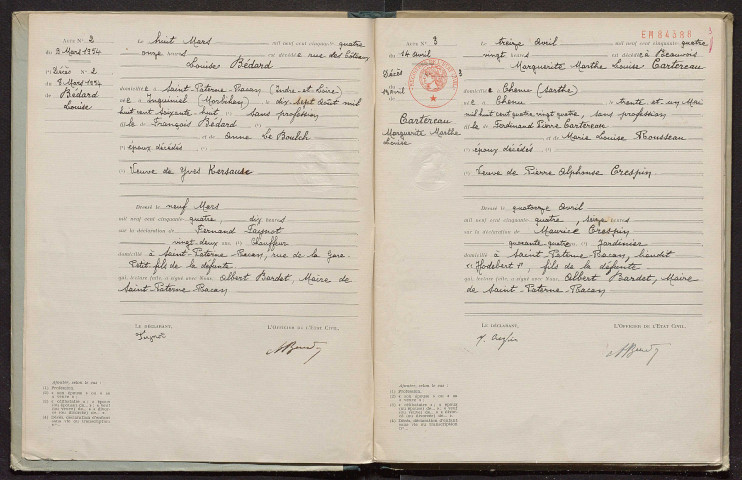 Acte N° 2
du 9 Mars 1954
Décès N° 2
8 Mars 1954
Bédard
Louise
Le huit Mars mil neuf cent cinquante quatre
onze heures est décédée rue des
Louise Bédard
domiciliée à Saint-Paterne-Racan (Indre-et-Loire)
née à Inguiniel (Morbihan) dix sept Août mil
huit cent soixante huit (1) sans profession
fille de François Bédard (1)
et de Anne Le Boulch (1)
(2) époux décédés (1)
(3) Veuve de Yves Kersause
Dressé le neuf Mars
mil neuf cent cinquante quatre, dix heures
sur la déclaration de Fernand
vingt deux ans (1) Chauffeur
domicilié à Saint-Paterne-Racan, rue de la Gare.
Petit fils de la défunte
qui, lecture faite, a signé avec Nous, Albert Bardet, Maire de
Saint-Paterne-Racan
LE DÉCLARANT,
L'OFFICIER DE L'ÉTAT CIVIL,
Ajouter, selon le cas :
(1) Profession.
Acte N° 3
du 14 Avril
Décès 3
13 Avril
Cartereau
Marguerite Marthe
Louise
EM 84588
Le treize Avril mil neuf cent cinquante quatre
vingt heures est décédée à
Marguerite Marthe Louise Cartereau
domiciliée à Chenu (Sarthe)
née à Chenu trente et un Mai
mil huit cent quatre vingt quatre, sans profession
fille de Ferdinand Pierre Cartereau
et de Marie Louise Rousseau
(2) époux décédés (1)
(3) Veuve de Pierre Alphonse Crespin
Dressé le quatorze Avril
mil neuf cent cinquante quatre, seize heures
sur la déclaration de Maurice Crespin
quarante quatre ans (1) Jardinier
domicilié à Saint-Paterne-Racan, lieudit
"Hodebert", fils de la défunte
qui, lecture faite, a signé avec Nous, Albert Bardet, Maire
de Saint-Paterne-Racan
LE DÉCLARANT,
L'OFFICIER DE L'ÉTAT CIVIL,
Ajouter, selon le cas :
(1) Profession.